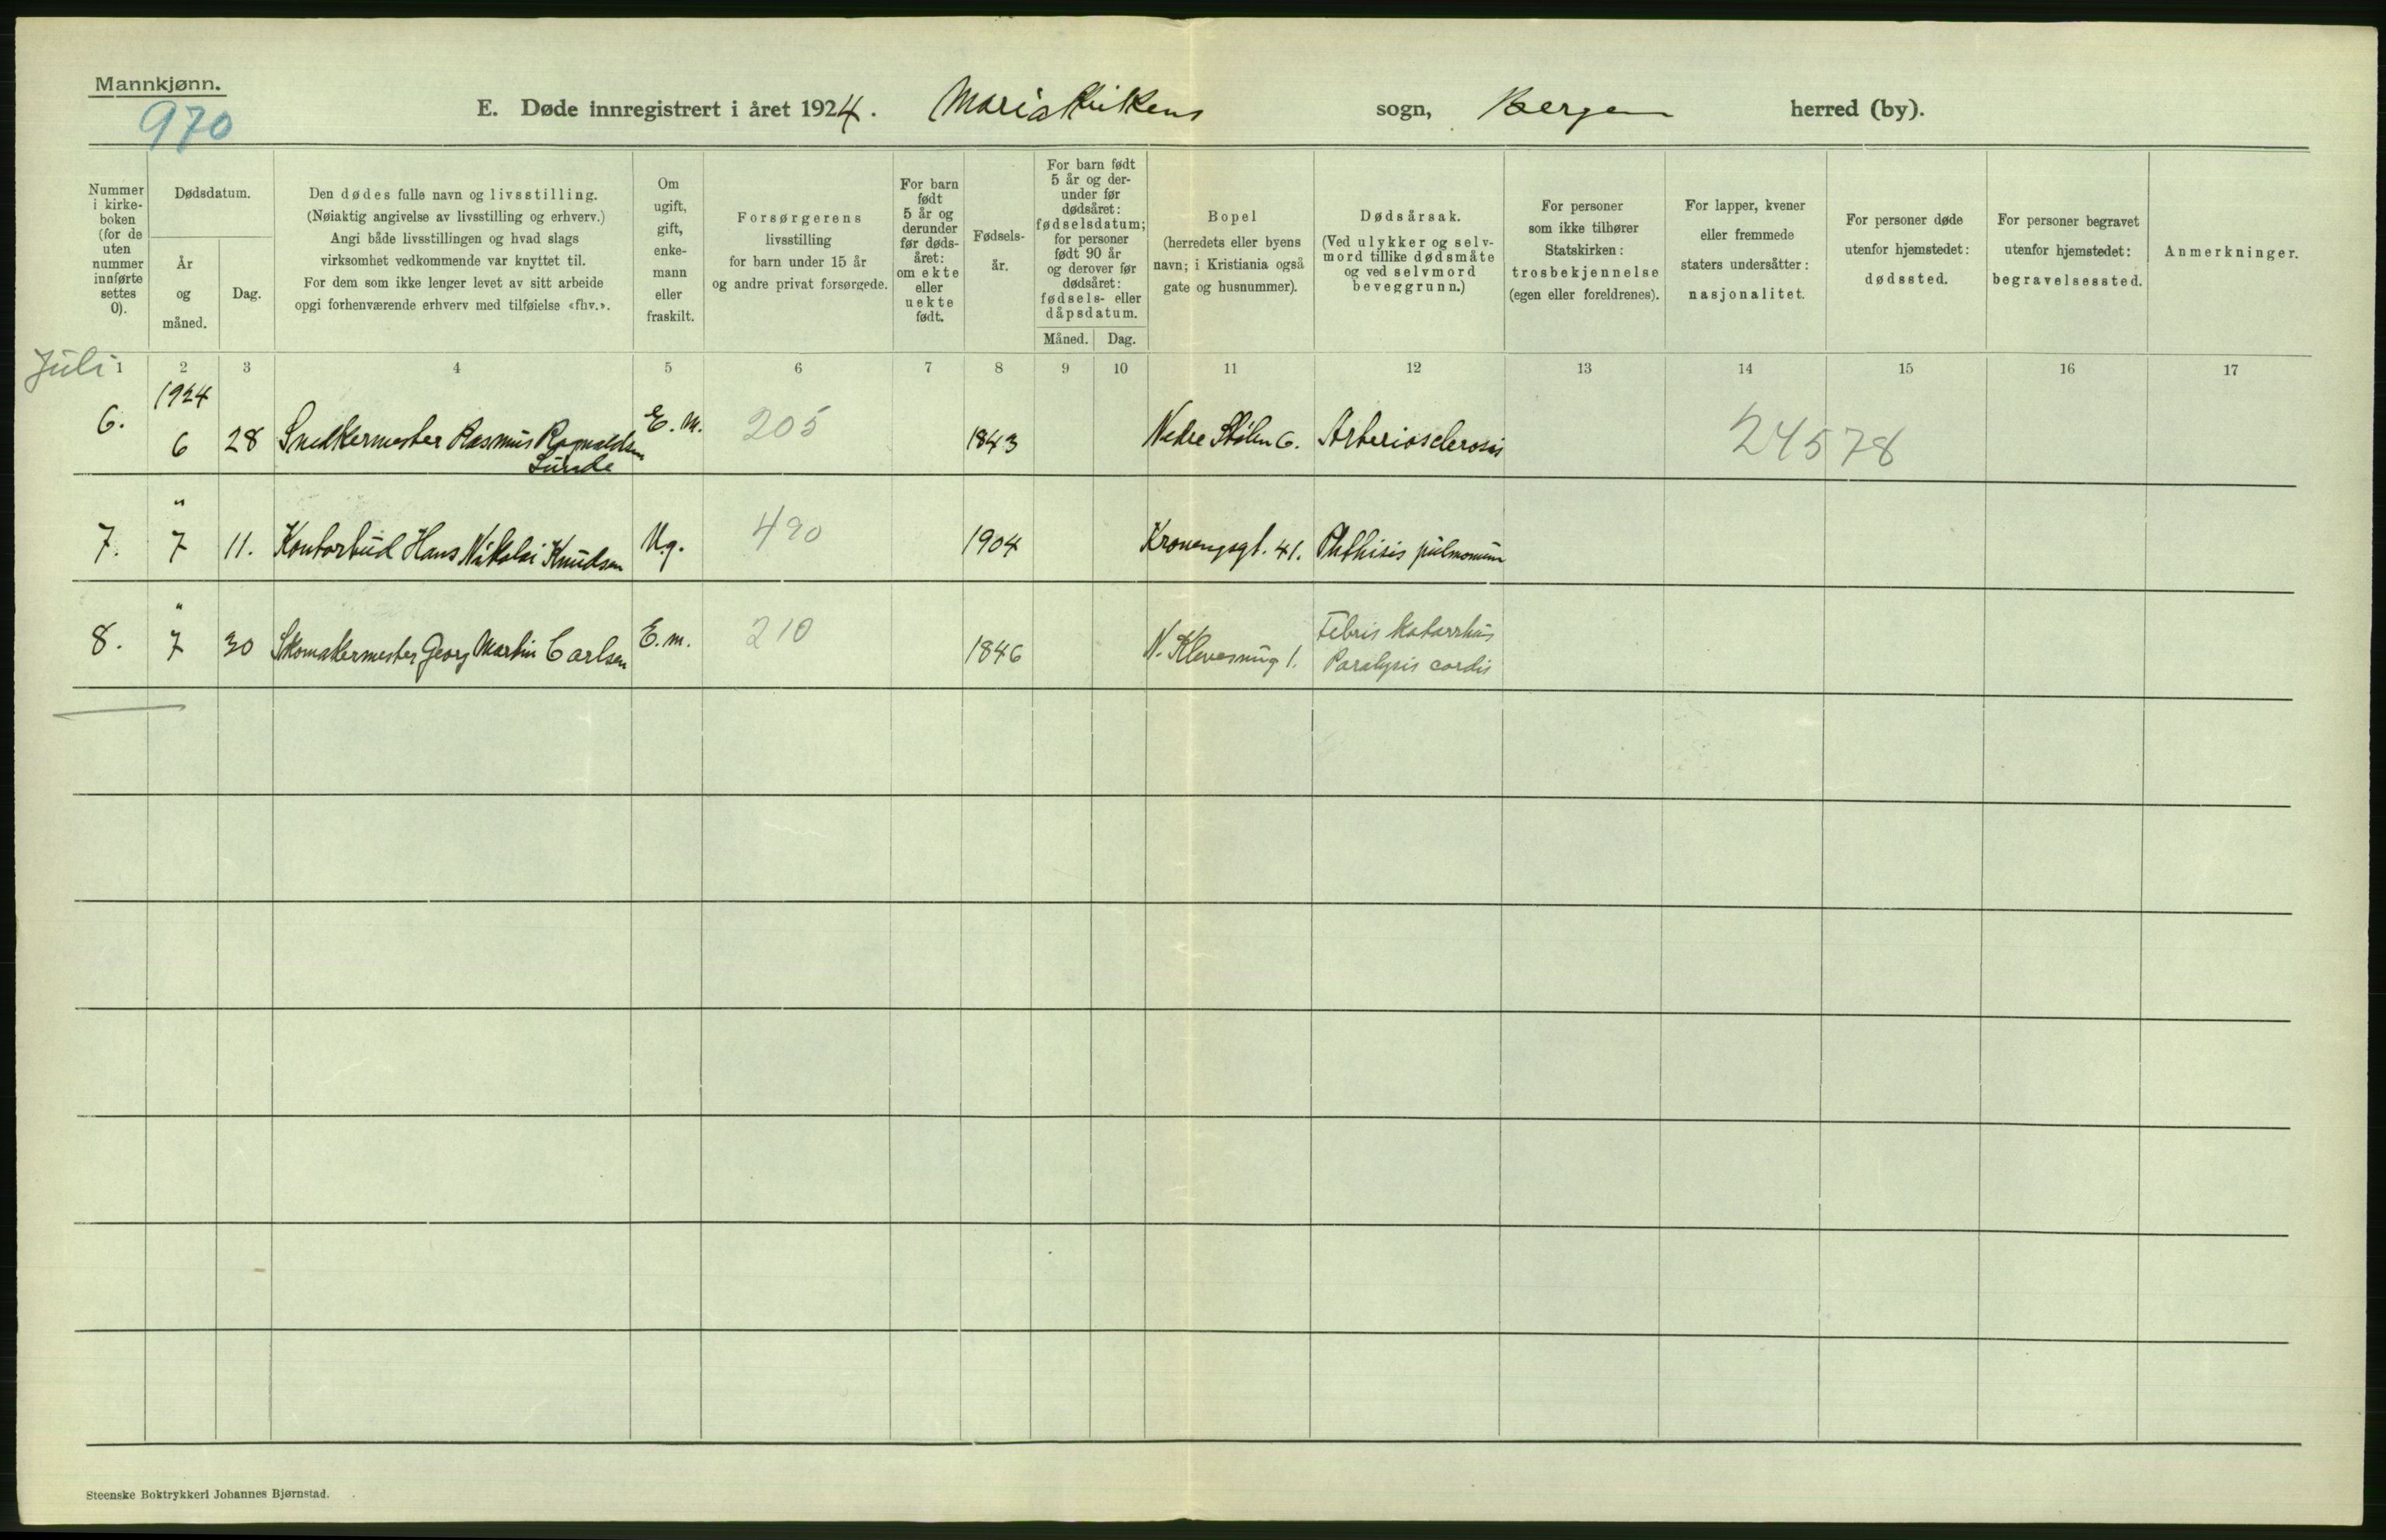 Mannkjønn.
970
E. Døde innregistrert i året 1924. Mariakirkens sogn, Bergen herred (by).
Nummer i kirke-boken (for de uten nummer innførte settes 0).
Dødsdatum.
År og måned.
Dag.
Den dødes fulle navn og livsstilling.
(Nøiaktig angivelse av livsstilling og erhverv.)
Angi både livsstillingen og hvad slags
virksomhet vedkommende var knyttet til.
For dem som ikke lenger levet av sitt arbeide
opgi forhenværende erhverv med tilføielse «fhv.».
Om ugift, gift, enke-mann eller fraskilt.
Forsørgerens
livsstilling
for barn under 15 år
og andre privat forsørgede.
For barn født 5 år og derunder før døds-året: om ekte eller uekte født.
Fødsels-år.
For barn født 5 år og der-under før dødsåret: fødselsdatum; for personer født 90 år og derover før dødsåret: fødsels- eller dåpsdatum.
Måned. Dag.
Bopel
(herredets eller byens
navn; i Kristiania også
gate og husnummer).
Dødsårsak.
(Ved ulykker og selv-
mord tillike dødsmåte
og ved selvmord
beveggrunn.)
For personer
som ikke tilhører
Statskirken:
trosbekjennelse
(egen eller foreldrenes).
For lapper, kvener
eller fremmede
staters undersåtter:
nasjonalitet.
For personer døde
utenfor hjemstedet:
dødssted.
For personer begravet
utenfor hjemstedet:
begravelsessted.
Anmerkninger.
Juli
1 2 3 4 5 6 7 8 9 10 11 12 13 14 15 16 17
1924
6. 6 28 Snedkermester Rasmus Ragnaldsen E. M. 205 1843 Nedre Stølen 6. Arteriosclerosis 24578
Lunde
"
7. 7 11. Kontorbud Hans Nikolai Knudsen Ug. 490 1904 Kronengsgt. 41. Phthisis pulmonum
"
8. 7 30 Skomakermester Georg Martin Carlsen E. m. 210 1846 N. Klevesmug 1. Febris katarrhus
Paralysis cordis
Steenske Boktrykkeri Johannes Bjørnstad.